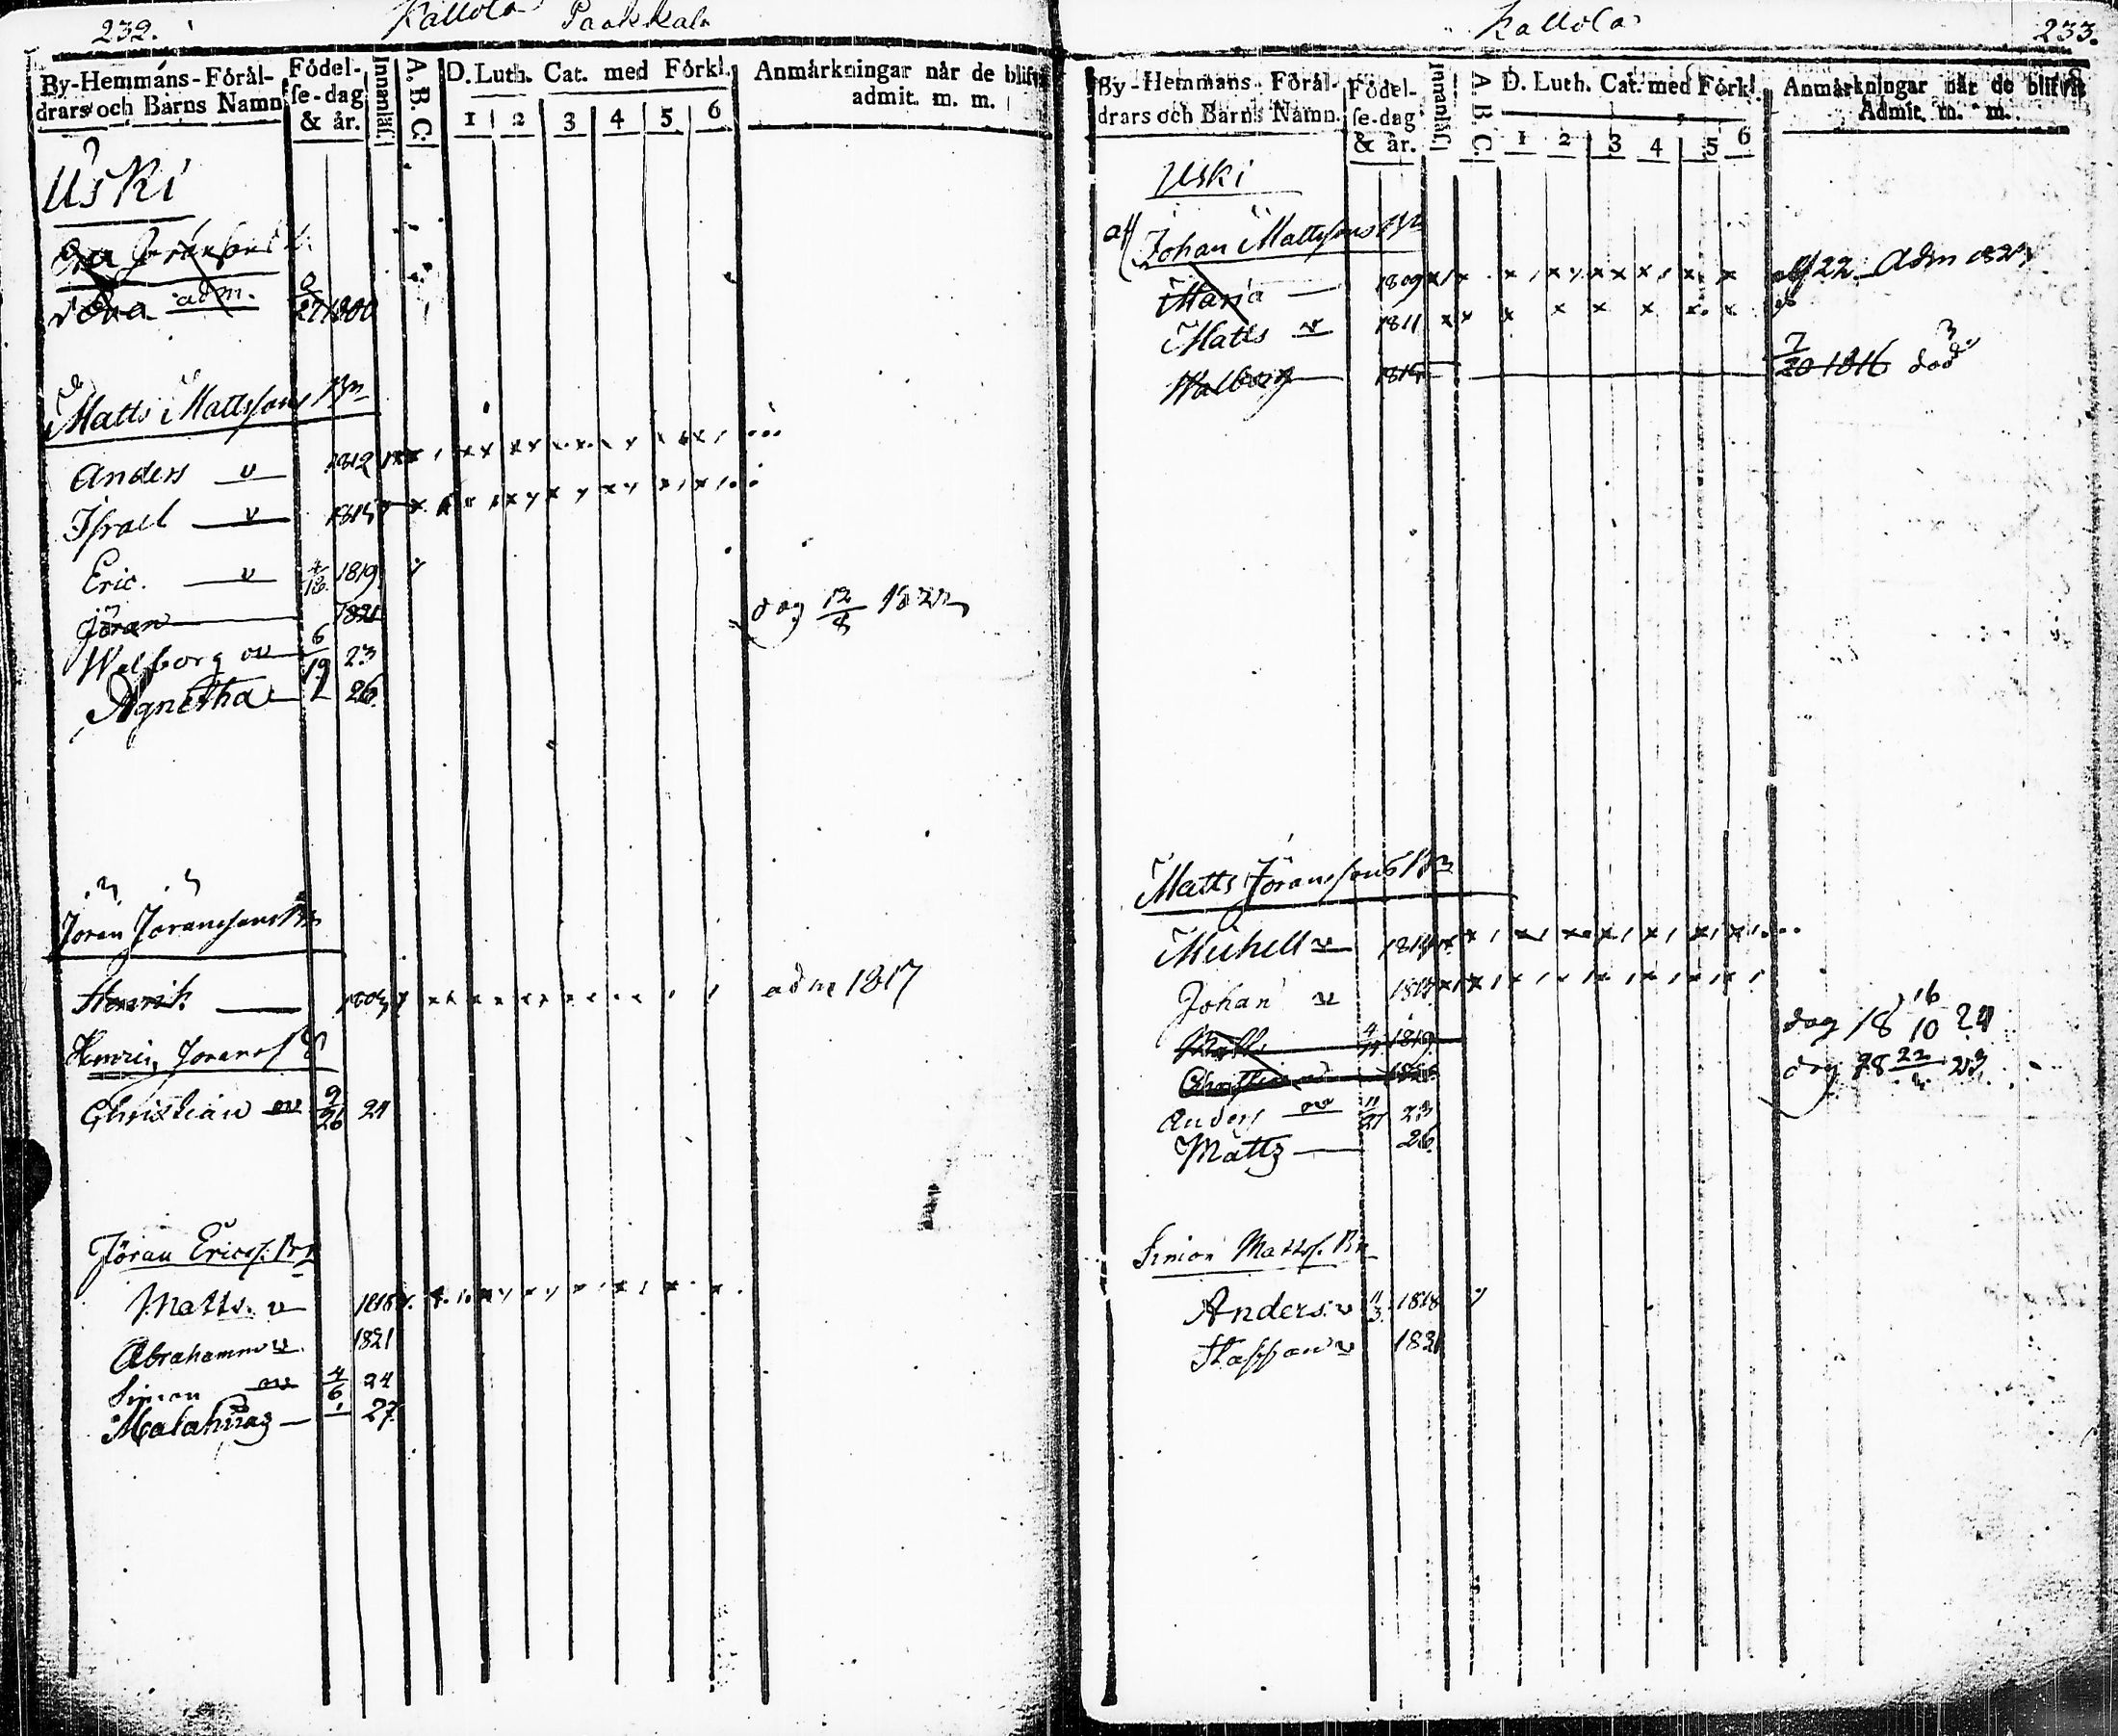 232. Kallola Paakkala
By-Hemmans-Föräl-
drars och Barns Namn
Födel-
se-dag
& år.
Innanläs.
A. B. C.
D. Luth. Cat. med Förkl.
1 2 3 4 5 6
Anmärkningar når de blifvit
admit. m. m.
Uski
adm. 1800
Matts Mattssons Bn
Anders v 1812
Israel v 1815
Eric. v 4/12 1819
Jöran 1821 dog 12/8 1822
Walborg ov 6/19 23
Agnetha 26
Jöran Jöranssons Bn
Henrik adm 1817
Henric Joranss
Christian ov 9/26 24
Jöran Ericss. Bn
Matts. v 1818
Abrahamm v. 1821
Simon ov 4/6 24
27.
Kallola 233.
By-Hemmans Föräl-
drars och Barns Namn.
Födel-
se-dag
& år.
Innanläs.
A. B. C.
D. Luth. Cat. med Förkl.
1 2 3 4 5 6
Anmärkningar når de blifvit
Admit. m. m.
Uski
Johan Mattssons Bn
Maria 1809
Matts v 1811
Walborg 1815 20 1816 död
Matts Jöranssons Bn
Michell v 1814
Johan v
Matts 1819 dog 18 16/10 24
Christian dog 18 22 23
Anders ov 11/27 23
Matts 26
Simon Matss. Bn
Anders. v 11/3 1818
Staffan v 1821